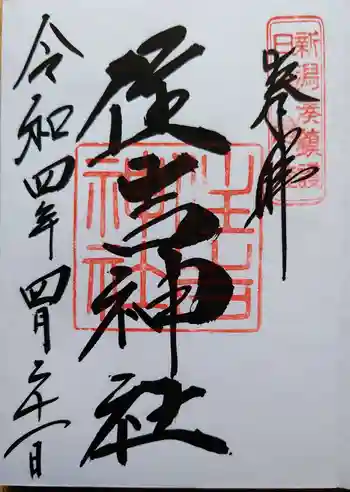 奉拝
住吉神社
令和四年四月二十一日
住吉
神社
新潟湊鎮護